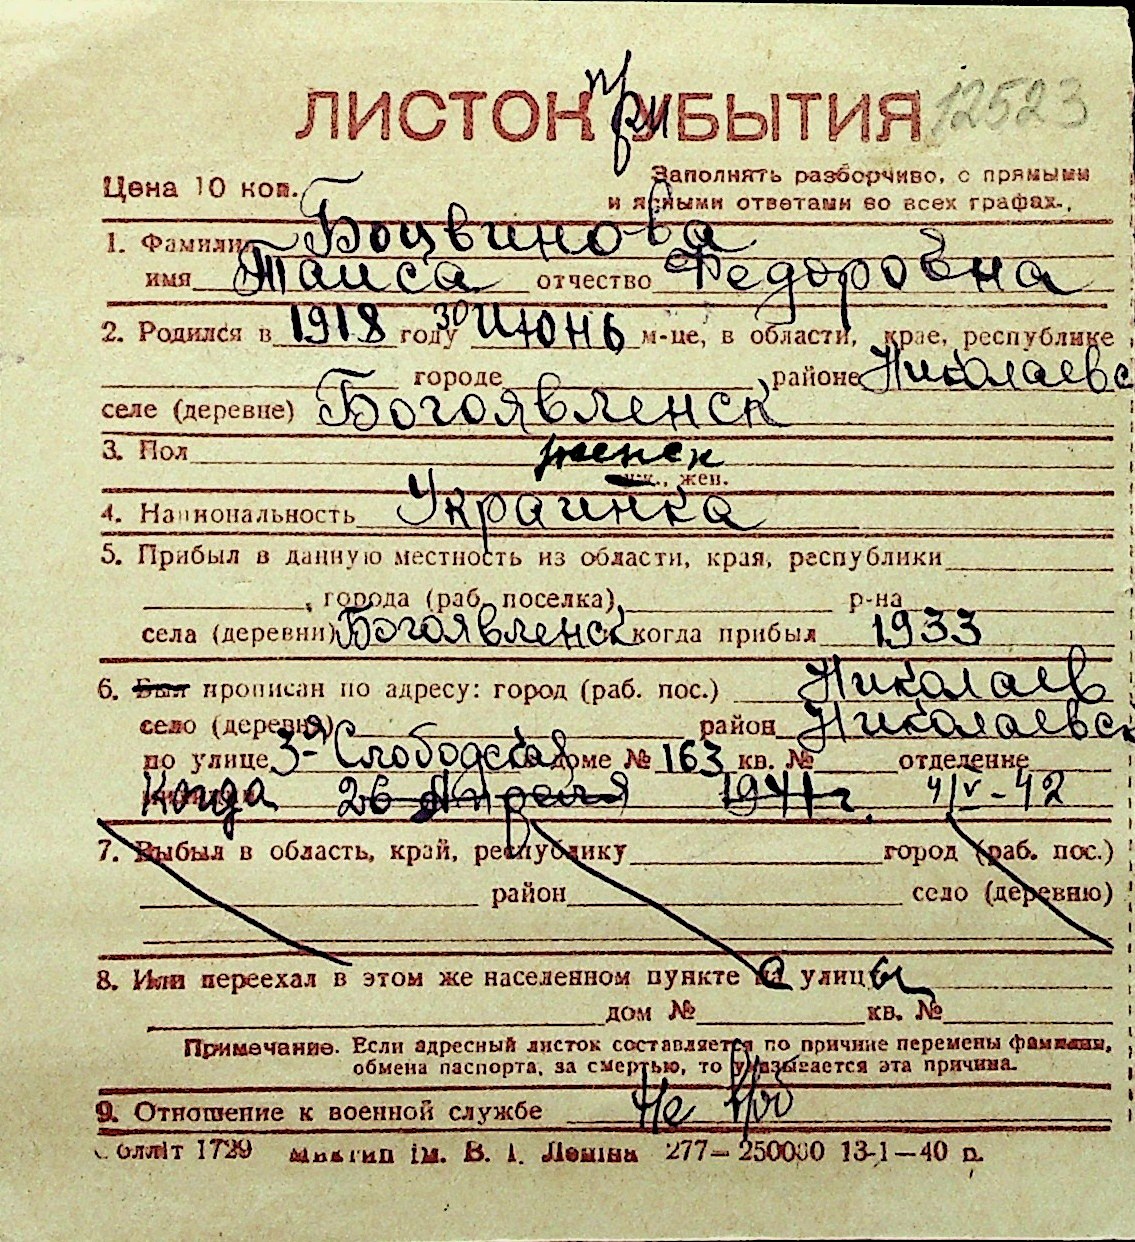 ЛИСТОК ПРИБЫТИЯ 12523
Цена 10 коп. Заполнять разборчиво, с прямыми
и ясными ответами во всех графах.
1. Фамилия Боцвинова
имя Таиса отчество Федоровна
2. Родился в 1918 году 30 Июнь м-це, в области, крае, республике
городе районе Николаевс
селе (деревне) Богоявленск
3. Пол женск
муж., жен.
4. Национальность Украинка
5. Прибыл в данную местность из области, края, республики
, города (раб. поселка), р-на
села (деревни) Богоявленск когда прибыл 1933
6. Был прописан по адресу: город (раб. пос.) Николаев
село (деревня) район Николаевск
по улице 3-я Слободская доме № 163 кв. № отделение
Когда 26 Апреля 1941 г. 4/V-42
7. Выбыл в область, край, республику город (раб. пос.)
район село (деревню)
8. Или переехал в этом же населенном пункте с улицы
дом № кв. №
Примечание. Если адресный листок составляется по причине перемены фамилии,
обмена паспорта, за смертью, то указывается эта причина.
9. Отношение к военной службе Не в/об
Облліт 1729 ім. В. І. Леніна 277—250000 13-1—40 р.